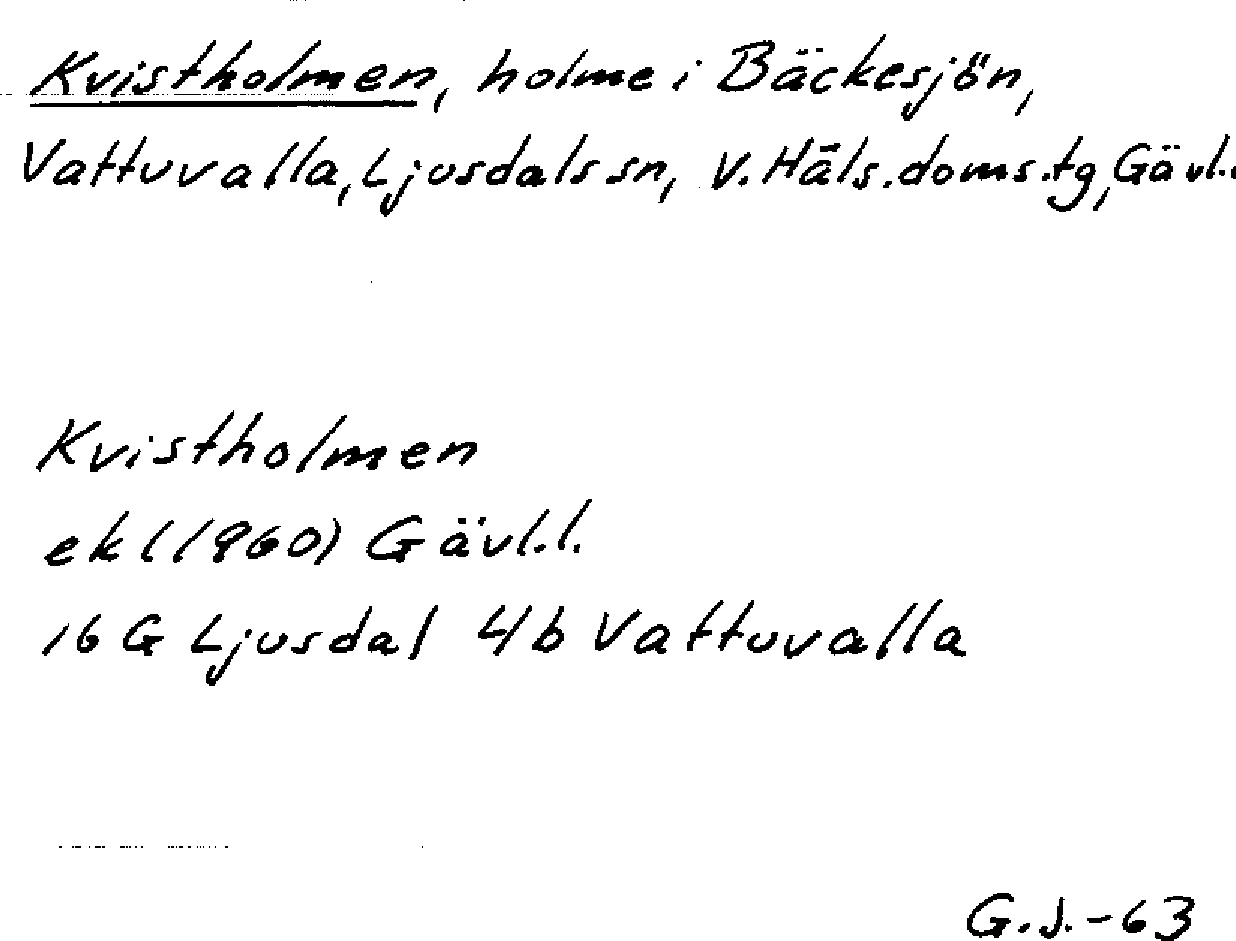 Kvistholmen, holme i Bäckesjön,
Vattuvalla, Ljusdals sn, V. Häls. doms.tg, Gävl.
Kvistholmen
ek (1960) Gävl.l.
16 G Ljusdal 4b Vattuvalla
G.J.-63